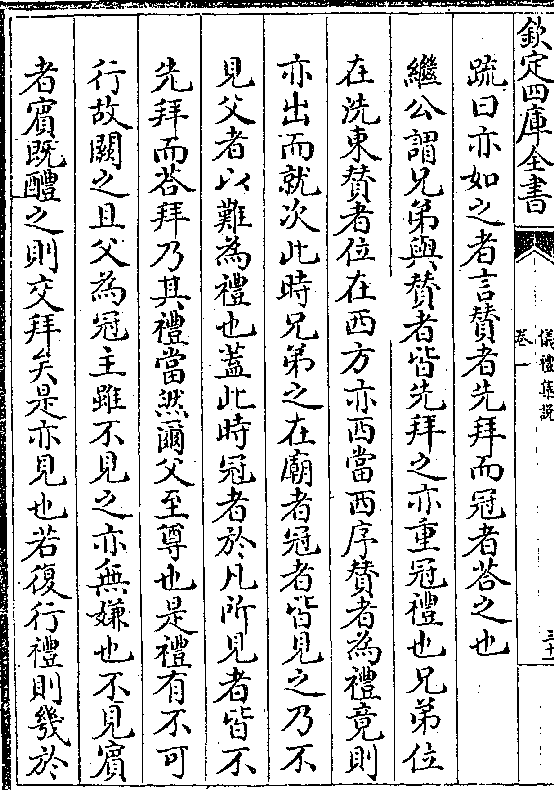 欽定四庫全書
儀禮集說
卷一
三十
疏曰亦如之者言贊者先拜而冠者荅之也
繼公謂兄弟與贊者皆先拜之亦重冠禮也兄弟位
在洗東贊者位在西方亦西當西序贊者為禮竟則
亦出而就次此時兄弟之在廟者冠者皆見之乃不
見父者以難為禮也蓋此時冠者於凡所見者皆不
先拜而荅拜乃其禮當然爾父至尊也是禮有不可
行故闕之且父為冠主雖不見之亦無嫌也不見賓
者賓既醴之則交拜矣是亦見也若復行禮則幾於